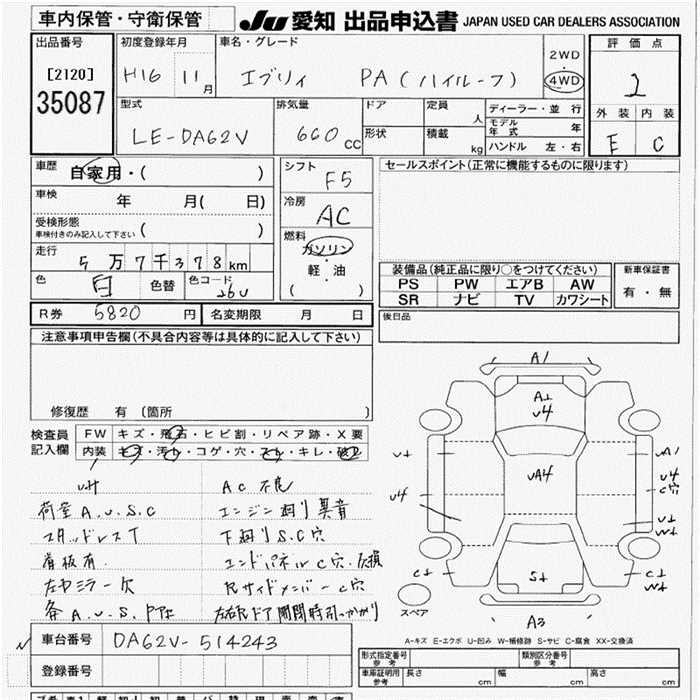 車内保管・守衛保管
JU 愛知 出品申込書 JAPAN USED CAR DEALERS ASSOCIATION
出品番号
[2120]
35087
初度登録年月
H16 11月
車名・グレード
エブリィ PA(ハイルーフ)
2WD
・
4WD
評価点
2
外装 内装
E C
型式
LE-DA62V
排気量
660cc
ドア
形状
定員 人
積載 kg
ディーラー・並行
モデル年式 年
ハンドル 左・右
車歴
自家用・( )
車検
年 月( 日)
受検形態
車検付きのみ記入して下さい ( )
走行
5万7千378km
色
白
色替
色コード
26U
シフト
F5
冷房
AC
燃料
ガソリン
・
軽・油
( )
セールスポイント(正常に機能するものに限ります)
装備品(純正品に限り○をつけてください)
PS PW エアB AW
SR ナビ TV カワシート
新車保証書
有・無
R券 5820円
名変期限 月 日
後日品
注意事項申告欄(不具合内容等は具体的に記入して下さい)
修復歴 有 〔箇所 〕
検査員記入欄
FW キズ・飛石・ヒビ割・リペア跡・X要
内装 キズ・汚れ・コゲ・穴・スレ・キレ・破れ
AC 不良
荷室 A.U.S.C
エンジン廻り異音
スタッドレスT
下廻りS.C穴
看板有.
エンドパネルC穴.
左サミラー欠
Rサイドメンバーc穴
各A.U.S.
左右Rドア開閉時引っかかり
A1
A⊥
U4
UA4
U⊥
U4
A1
U⊥
U4
C穴
U⊥
W⊥
C⊥
S⊥
C⊥
W⊥
A3
スペア
A-キズ E-エクボ U-凹み W-補修跡 S-サビ C-腐食 XX-交換済
車台番号
DA62V-514243
登録番号
形式指定番号
参考
類別区分番号
参考
車庫証明用
参考
長さ cm
幅 cm
高さ cm